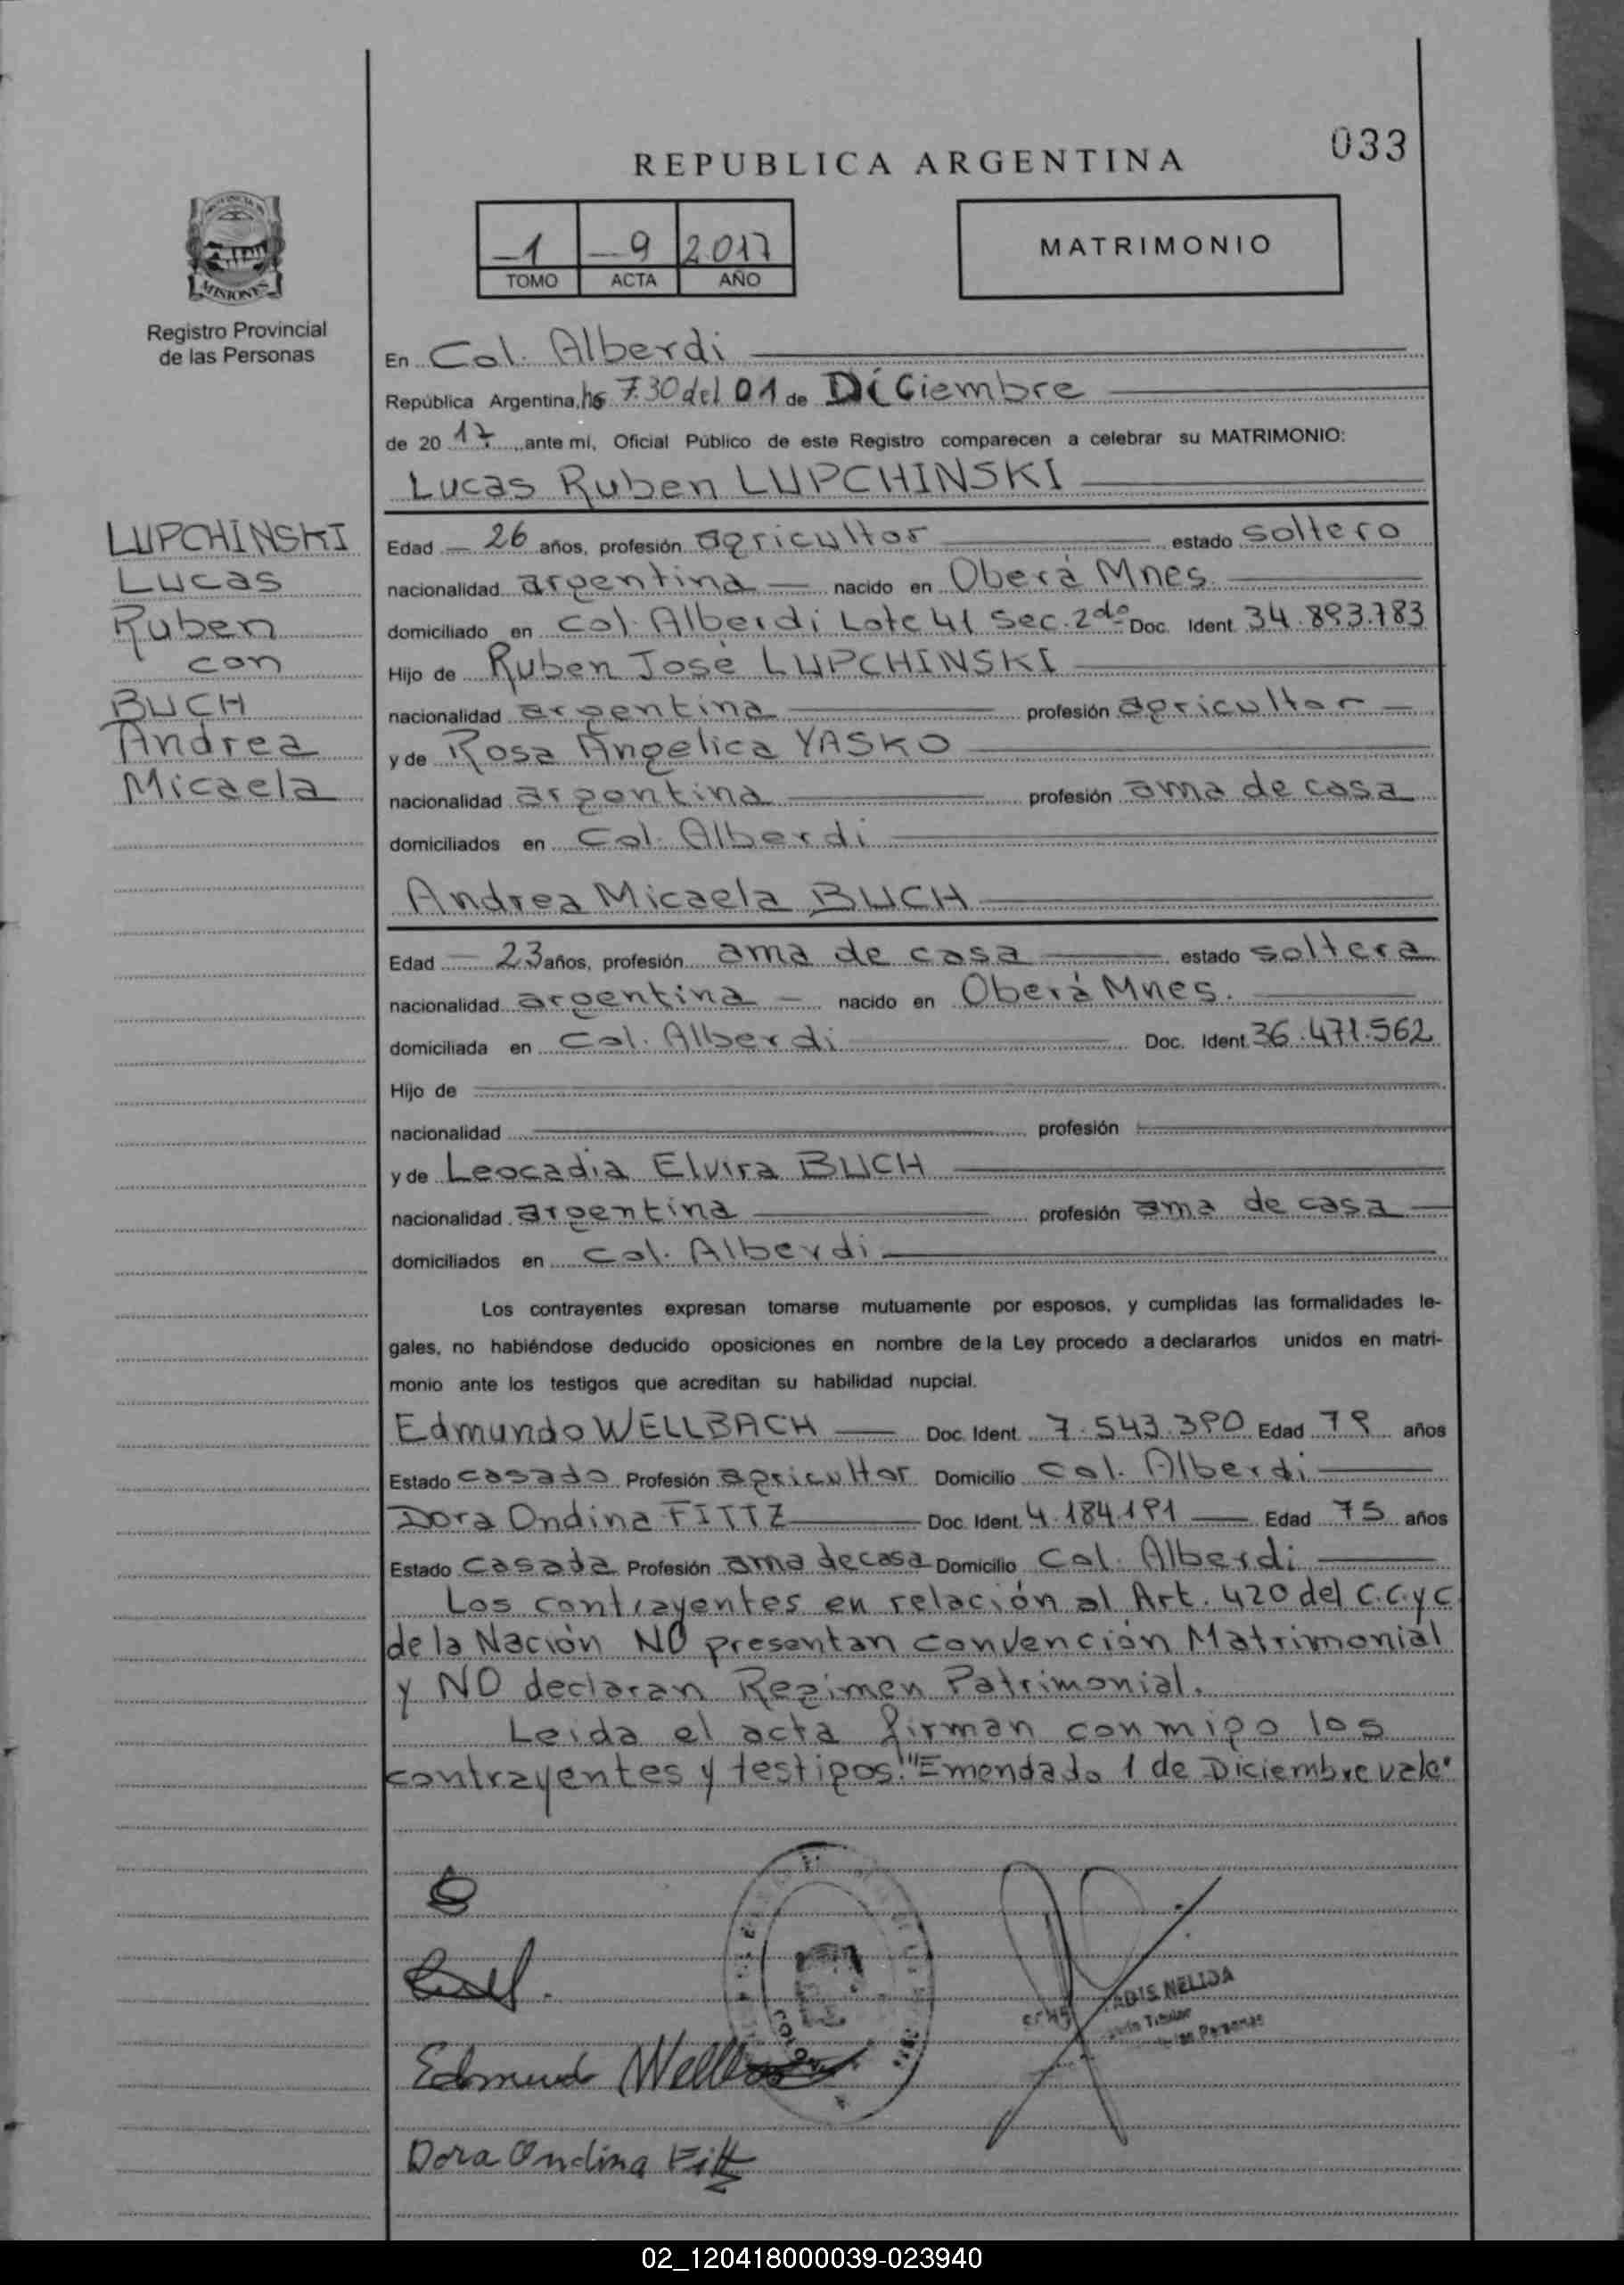 033
REPUBLICA ARGENTINA
1 9 2017
TOMO ACTA AÑO
MATRIMONIO
MISIONES
Registro Provincial
de las Personas
En Col. Alberdi
República Argentina, hs 7.30 del 01 de Diciembre
de 20 17, ante mí, Oficial Público de este Registro comparecen a celebrar su MATRIMONIO:
Lucas Ruben LUPCHINSKI
LUPCHINSKI
Lucas
Ruben
con
BUCH
Andrea
Micaela
Edad 26 años, profesión agricultor estado soltero
nacionalidad argentina nacido en Oberá Mnes.
domiciliado en Col. Alberdi Lote 41 Sec. 2da Doc. Ident. 34.893.783
Hijo de Ruben José LUPCHINSKI
nacionalidad argentina profesión agricultor
y de Rosa Angelica YASKO
nacionalidad argentina profesión ama de casa
domiciliados en Col. Alberdi
Andrea Micaela BUCH
Edad 23 años, profesión ama de casa estado soltera
nacionalidad argentina nacido en Oberá Mnes.
domiciliada en Col. Alberdi Doc. Ident. 36.471.562
Hijo de
nacionalidad profesión
y de Leocadia Elvira BUCH
nacionalidad argentina profesión ama de casa
domiciliados en Col. Alberdi
Los contrayentes expresan tomarse mutuamente por esposos, y cumplidas las formalidades le-
gales, no habiéndose deducido oposiciones en nombre de la Ley procedo a declararlos unidos en matri-
monio ante los testigos que acreditan su habilidad nupcial.
Edmundo WELLBACH Doc. Ident. 7.543.390 Edad 79 años
Estado casado Profesión agricultor Domicilio Col. Alberdi
Dora Ondina FITTZ Doc. Ident. 4.184.191 Edad 75 años
Estado casada Profesión ama de casa Domicilio Col. Alberdi
Los contrayentes en relación al Art. 420 del C.C.y C
de la Nación NO presentan convención Matrimonial
y NO declaran Regimen Patrimonial.
Leida el acta firman conmigo los
contrayentes y testigos. "Emendado 1 de Diciembre vale"
NELIDA
Titular
las Personas
Edmundo
Dora Ondina Fittz
02_120418000039-023940